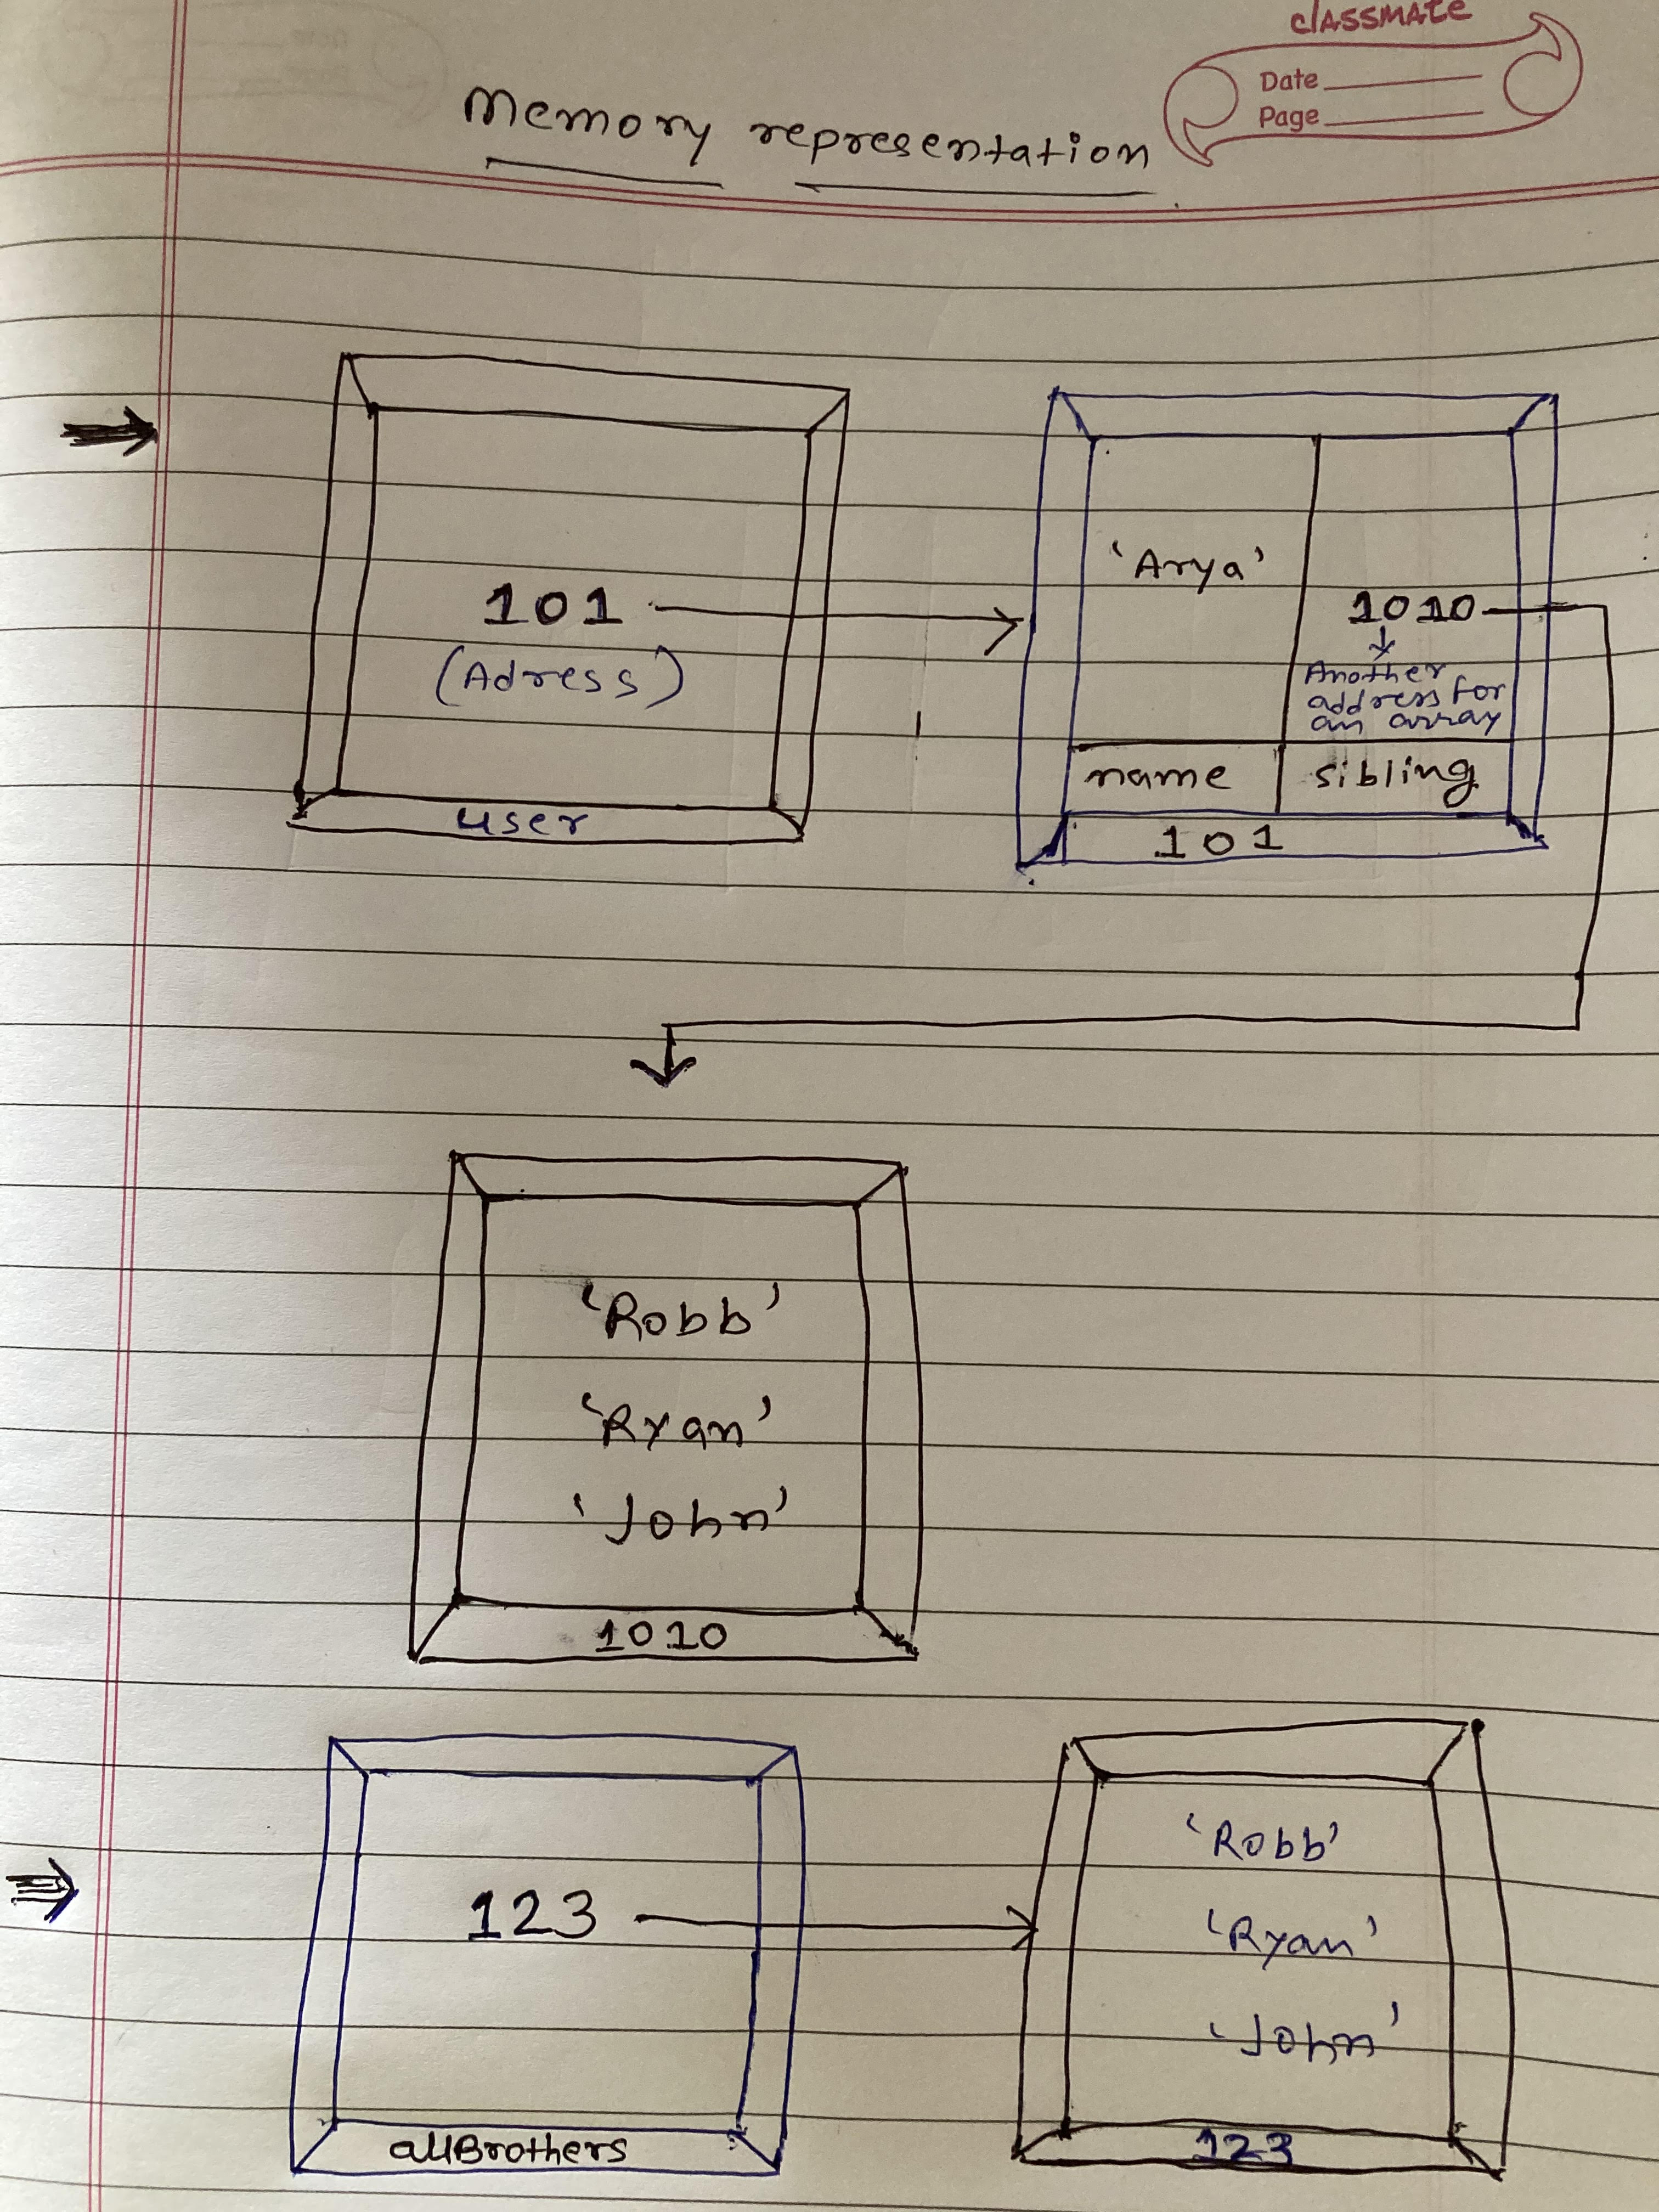 classmate
Date
Page
Memory representation
101
(Adress)
user
'Arya'
1010
Another
address for
an array
name
sibling
101
'Robb'
'Ryan'
'John'
1010
123
allBrothers
'Robb'
'Ryan'
'John'
123